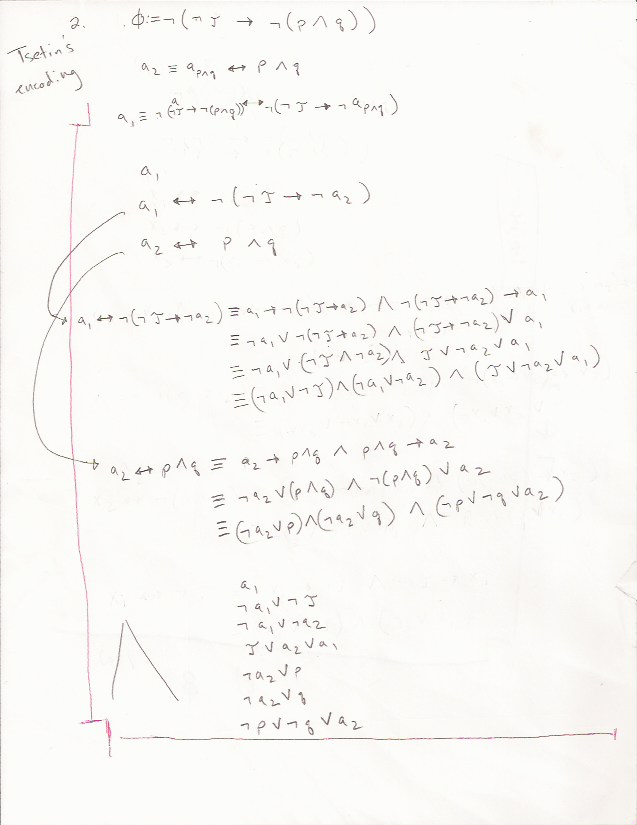 2. ϕ:=¬(¬J → ¬(p∧q))
Tsetin's
encoding
a₂ ≡ a_{p∧q} ↔ p ∧ q
a₁ ≡ ¬(¬J→¬(p∧q)) ↔ ¬(¬J → ¬a_{p∧q})
a₁
a₁ ↔ ¬(¬J → ¬a₂)
a₂ ↔ p ∧ q
a₁↔¬(¬J→¬a₂) ≡ a₁→¬(¬J→a₂) ∧ ¬(¬J→¬a₂) → a₁
≡ ¬a₁∨¬(¬J→a₂) ∧ (¬J→¬a₂)∨ a₁
≡ ¬a₁∨(¬J∧¬a₂)∧ J∨¬a₂∨a₁
≡(¬a₁∨¬J)∧(¬a₁∨¬a₂) ∧ (J∨¬a₂∨a₁)
a₂↔p∧q ≡ a₂→p∧q ∧ p∧q→a₂
≡ ¬a₂∨(p∧q) ∧ ¬(p∧q)∨a₂
≡(¬a₂∨p)∧(¬a₂∨q) ∧ (¬p∨¬q∨a₂)
a₁
¬a₁∨¬J
¬a₁∨¬a₂
J∨a₂∨a₁
¬a₂∨p
¬a₂∨q
¬p∨¬q∨a₂